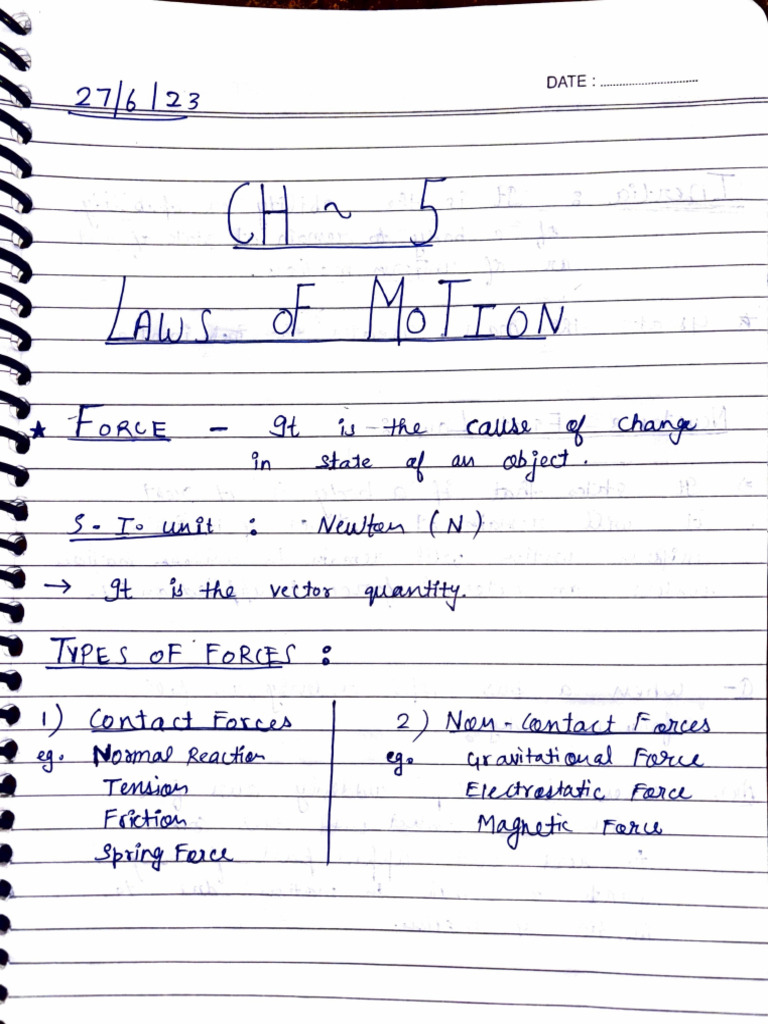 DATE : ............................
27/6/23
CH ~ 5
LAWS OF MOTION
★ FORCE - It is the cause of change
in state of an object.
S.I. unit : Newton (N)
→ It is the vector quantity.
TYPES OF FORCES :
1) Contact Forces
eg. Normal Reaction
Tension
Friction
Spring Force
2) Non-Contact Forces
eg. Gravitational Force
Electrostatic Force
Magnetic Force